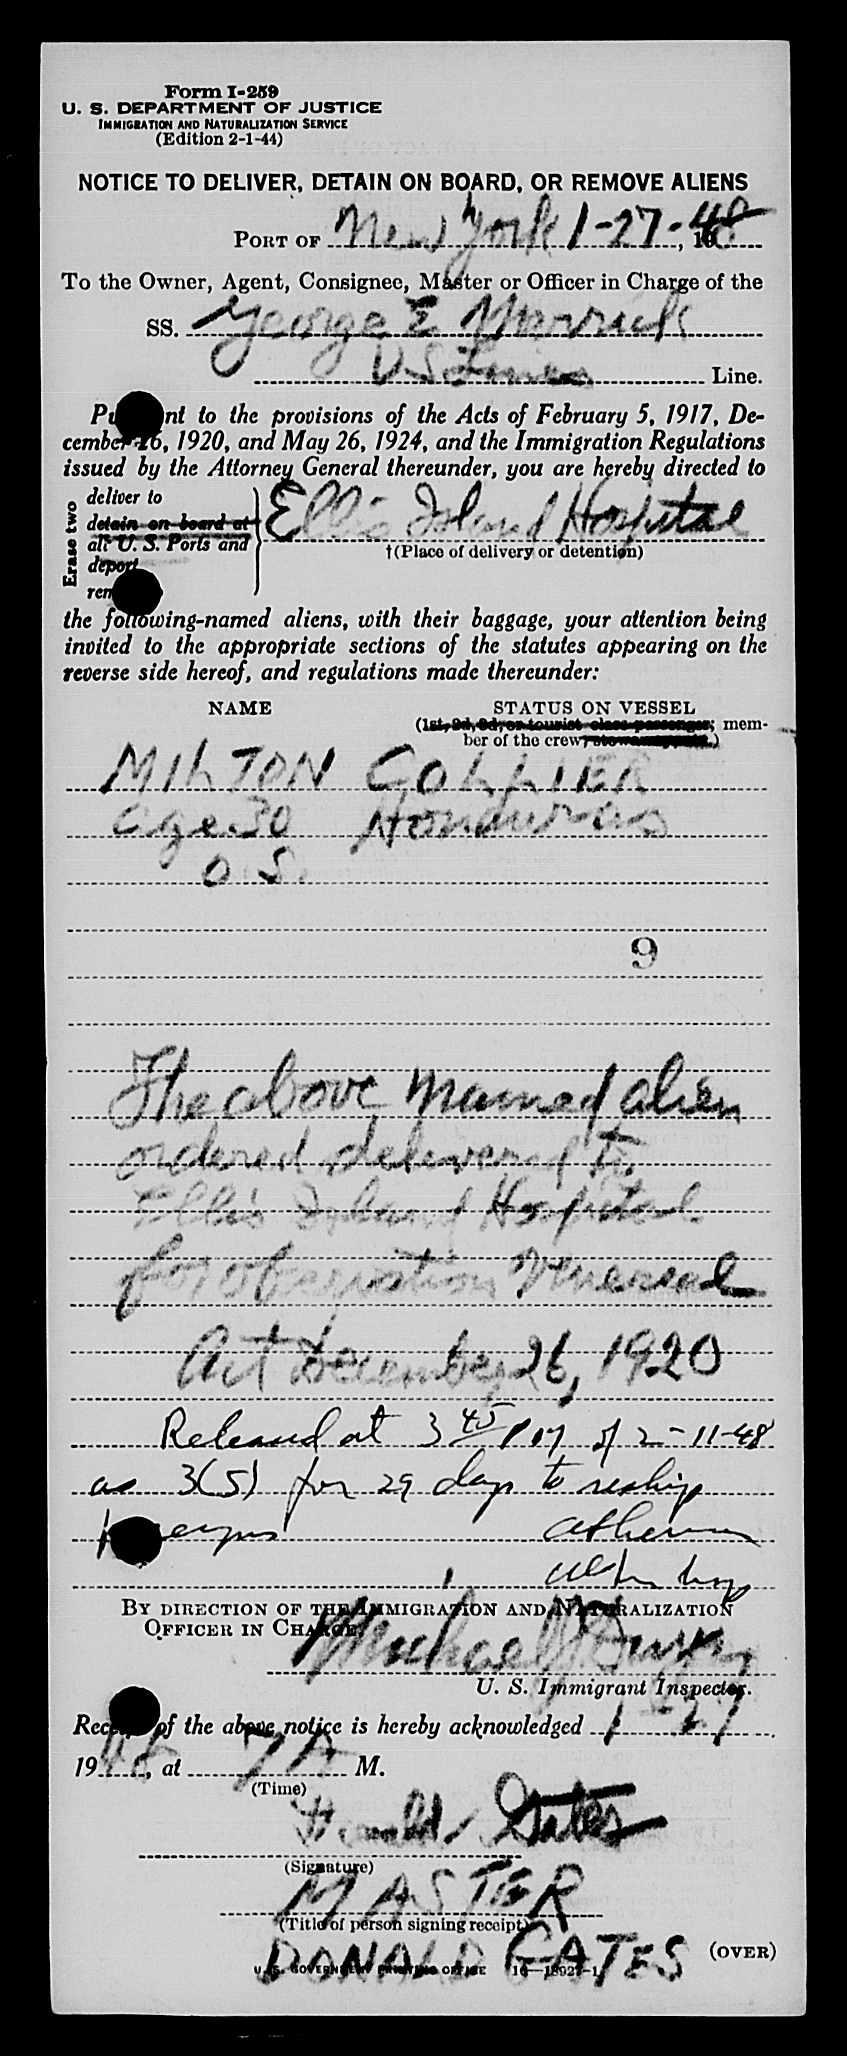 Form I-259
U. S. DEPARTMENT OF JUSTICE
IMMIGRATION AND NATURALIZATION SERVICE
(Edition 2-1-44)
NOTICE TO DELIVER, DETAIN ON BOARD, OR REMOVE ALIENS
PORT OF New York 1-27-, 1948
To the Owner, Agent, Consignee, Master or Officer in Charge of the
SS. George E Merrick
U S Lines Line.
Pu nt to the provisions of the Acts of February 5, 1917, De-
cember 26, 1920, and May 26, 1924, and the Immigration Regulations
issued by the Attorney General thereunder, you are hereby directed to
Erase two
deliver to
detain on board at
all U. S. Ports and
deport
rem
Ellis Island Hospital
†(Place of delivery or detention)
the following-named aliens, with their baggage, your attention being
invited to the appropriate sections of the statutes appearing on the
reverse side hereof, and regulations made thereunder:
NAME STATUS ON VESSEL
(1st, 2d, 3d, or tourist class passenger; mem-
ber of the crew, stowaway
MILTON COLLIER
age 30 Honduras
O. S.
9
The above named alien
ordered delivered to
Ellis Island Hospital
for observation Venereal
Act December 26, 1920
Released at 3 45 PM of 2-11-48
as 3(5) for 29 days to reship
BY DIRECTION OF THE IMMIGRATION AND NATURALIZATION
OFFICER IN CHARGE.
Michael J
U. S. Immigrant Inspector.
Rec of the above notice is hereby acknowledged 1-27
1948, at 7 A M.
(Time)
Donald Gates
(Signature)
MASTER
(Title of person signing receipt)
DONALD GATES
(OVER)
U. S. GOVERNMENT PRINTING OFFICE 16—18927-1